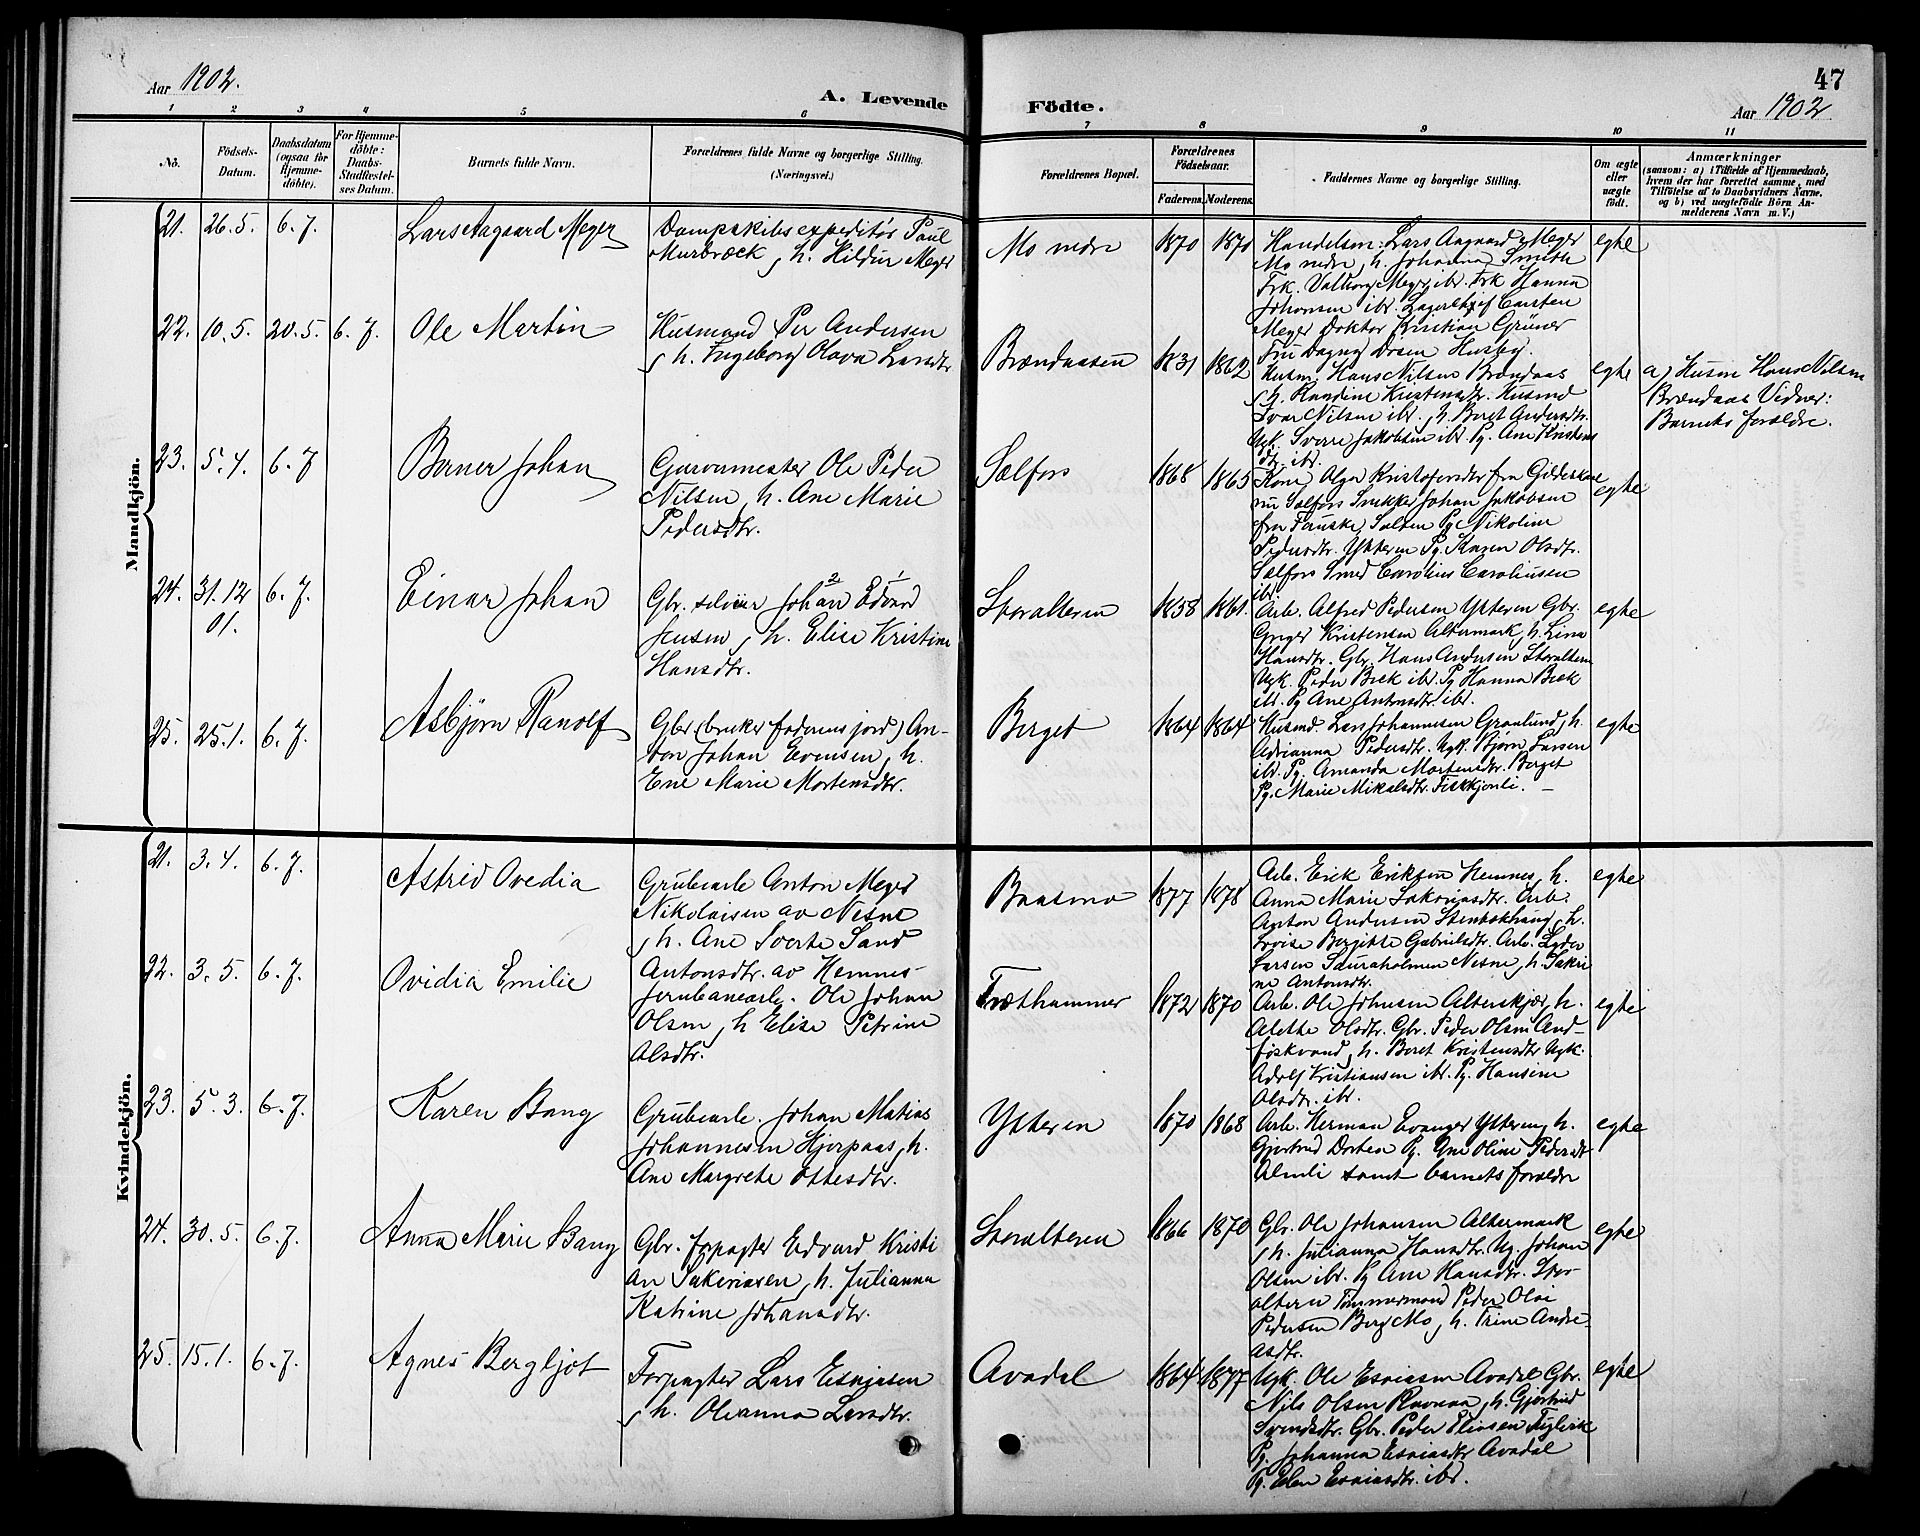 47
Aar 1902.
A. Levende Födte.
Aar 1902
1 2 3 4 5 6 7 8 9 10 11
No.
Födsels-Datum.
Daabsdatum (ogsaa for Hjemme-döbte).
For Hjemme-döbte: Daabs-Stadfæstel-ses Datum.
Barnets fulde Navn.
Forældrenes fulde Navne og borgerlige Stilling.
(Næringsvei.)
Forældrenes Bopæl.
Forældrenes Födselsaar.
Faderens. Moderens.
Faddernes Navne og borgerlige Stilling.
Om ægte eller uægte födt.
Anmærkninger
(saasom: a) i Tilfælde af Hjemmedaab,
hvem der har forrettet samme, med
Tilföielse af to Daabsvidners Navne,
og b) ved uægtefödte Börn An-
melderens Navn m. V.)
Mandkjön.
21. 26.5. 6.7. Lars Aagaard Meyer
Dampskibsexpeditör Paul
Murbræck, h. Hildur Meyer
Mo nedre 1870 1870
Handelsm. Lars Aagaard Meyer
Mo nedre, h. Johanna Smith
Frk. Valborg Meyer ibd. Frk Hanna
Johansen ibd. Lagerchef Carsten
Meyer Doktor Kristian Grüner
Fru Dagny Dosen Husby.
egte
22. 10.5. 20.5. 6.7. Ole Martin
Husmand Per Andersen
h. Ingeborg Olava Larsdtr
Brændaasen 1831 1862
Husm. Hans Nilsen Brændaas
h. Randine Kristensdtr. Husmd
Ivar Nilsen ibd., h. Beret Andersdtr.
Ugk. Sverre Jakobsen ibd. Pg. Ane Kristens
dtr. ibd.
egte
a) Husm Hans Nilsen
Brændaas Vidner:
Barnets forældre.
23. 5.4. 6.7 Berner Johan
Garvermester Ole Peder
Nilsen, h. Ane Marie
Pedersdtr.
Selfors 1868 1865
Kone Olga Kristofersdtr fra Gildeskaal
nu Selfors Snekker Johan Jakobsen
fra Fauske, Salten Pg. Nikoline
Pedersdtr. Ytteren Pg. Karen Olsdtr.
Selfors Smed Carolius Caroliussen
ibd.
egte
24. 31.12 01. 6.7. Einar Johan
Gbr. selveier Johan Edvard
Jensen, h. Elise Kristine
Hansdtr.
Storalteren 1858 1861.
Arb. Alfred Pedersen Ytteren Gbr.
Greger Kristensen Altermark, h. Lina
Hansdtr. Gbr. Hans Andersen Storalteren
Ugk. Peder Bæk ibd. Pg Hanna Bæk
ibd. Pg Ane Antonsdtr. ibd.
egte
25. 25.1. 6.7. Asbjørn Ranolf
Gbr. (bruker faderens jord) An-
ton Johan Evensen, h.
Ene Marie Mortensdtr.
Berget 1864 1864
Husmd. Lars Johannesen Grønlund, h.
Adrianna Pedersdtr. Ugk. Bjørn Larsen
ibd. Pg. Amanda Mortensdtr. Berget
Pg. Marie Mikalsdtr. Fiskkjønli.
egte
Kvindekjön.
21. 3.4. 6.7. Astrid Ovedia
Grubearb. Anton Meyer
Nikolaisen av Nesne
h. Ane Sverte Sand
Antonsdtr. av Hemnes
Baasmo 1877 1878
Arb. Erik Eriksen Hemnes, h.
Anna Marie Sakariasdtr. Arb.
Anton Andersen Stenbekhaug, h.
Lovise Bergitte Gabrielsdtr. Arb. Lyder
Larsen Sauraholmen Nesne, h. Sakri
ne Antonsdtr.
egte
22. 3.5. 6.7. Ovidia Emilie
Jernbanearb. Ole Johan
Olsen, h Elise Petrine
Olsdtr.
Træthammer 1872 1870
Arb. Ole Johnsen Alterskjær, h.
Alette Olsdtr. Gbr. Peder Olsen And-
föskvand, h. Beret Kristensdtr Ugk.
Adolf Kristiansen ibd. Pg. Hansine
Olsdtr. ibd.
egte
23. 5.3. 6.7. Karen Bang
Grubearb. Johan Matias
Johannesen Hjorpaas, h.
Ane Margrete Ottesdtr.
Ytteren 1870 1868
Arb. Herman Evanger Ytteren, h.
Gjertrud Dortea Pg. Ane Oline Pedersdt
Almli samt barnets forældre
egte
24. 30.5. 6.7. Anna Marie Bang
Gbr. forpagter Edvard Kristi
an Sakeriasen, h. Julianna
Katrine Johansdtr.
Storalteren 1866 1870
Gbr. Ole Johansen Altermark
h. Julianna Hansdtr. Ug. Johan
Olsen ibd. Pg Ane Hansdtr. Stor-
alteren Tömmermand Peder Olae
Pedersen Berg Mo, h. Trine Andre-
asdtr.
egte
25. 15.1. 6.7. Agnes Bergljot
Forpagter Lars Esajasen
h. Oleanna Larsdtr.
Avadal 1864 1877
Ugk. Ole Esaiasen Avadal Gbr.
Nils Olsen Ravnaa, h. Gjertrud
Svendsdtr. Gbr. Peder Eliasen Fuglevik
Pg. Johanna Esaiasdtr Avadal
Pg. Elen Esaiasdtr. ibd.
egte